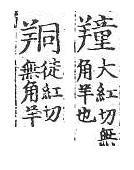 大紅切無
角羊也
徒紅切
無角羊